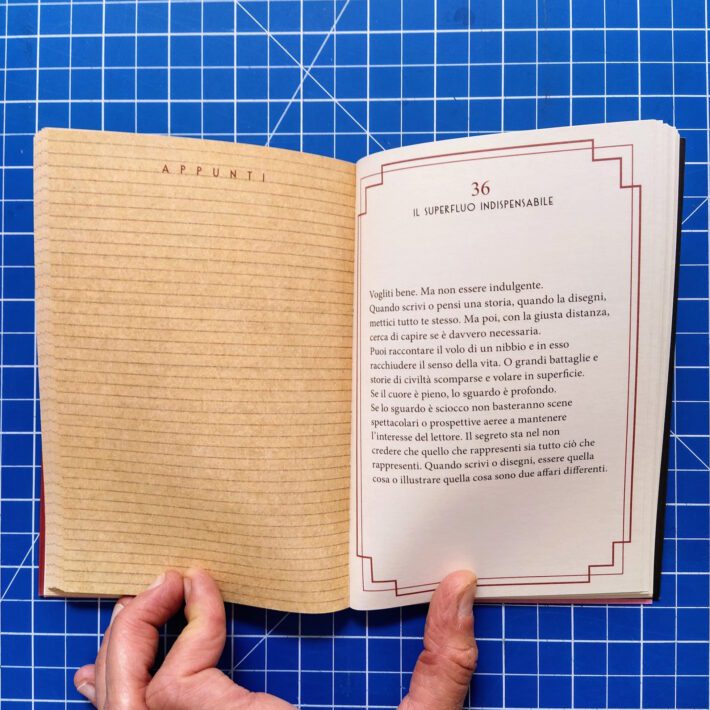 APPUNTI
36
IL SUPERFLUO INDISPENSABILE
Vogliti bene. Ma non essere indulgente.
Quando scrivi o pensi una storia, quando la disegni,
mettici tutto te stesso. Ma poi, con la giusta distanza,
cerca di capire se è davvero necessaria.
Puoi raccontare il volo di un nibbio e in esso
racchiudere il senso della vita. O grandi battaglie e
storie di civiltà scomparse e volare in superficie.
Se il cuore è pieno, lo sguardo è profondo.
Se lo sguardo è sciocco non basteranno scene
spettacolari o prospettive aeree a mantenere
l'interesse del lettore. Il segreto sta nel non
credere che quello che rappresenti sia tutto ciò che
rappresenti. Quando scrivi o disegni, essere quella
cosa o illustrare quella cosa sono due affari differenti.